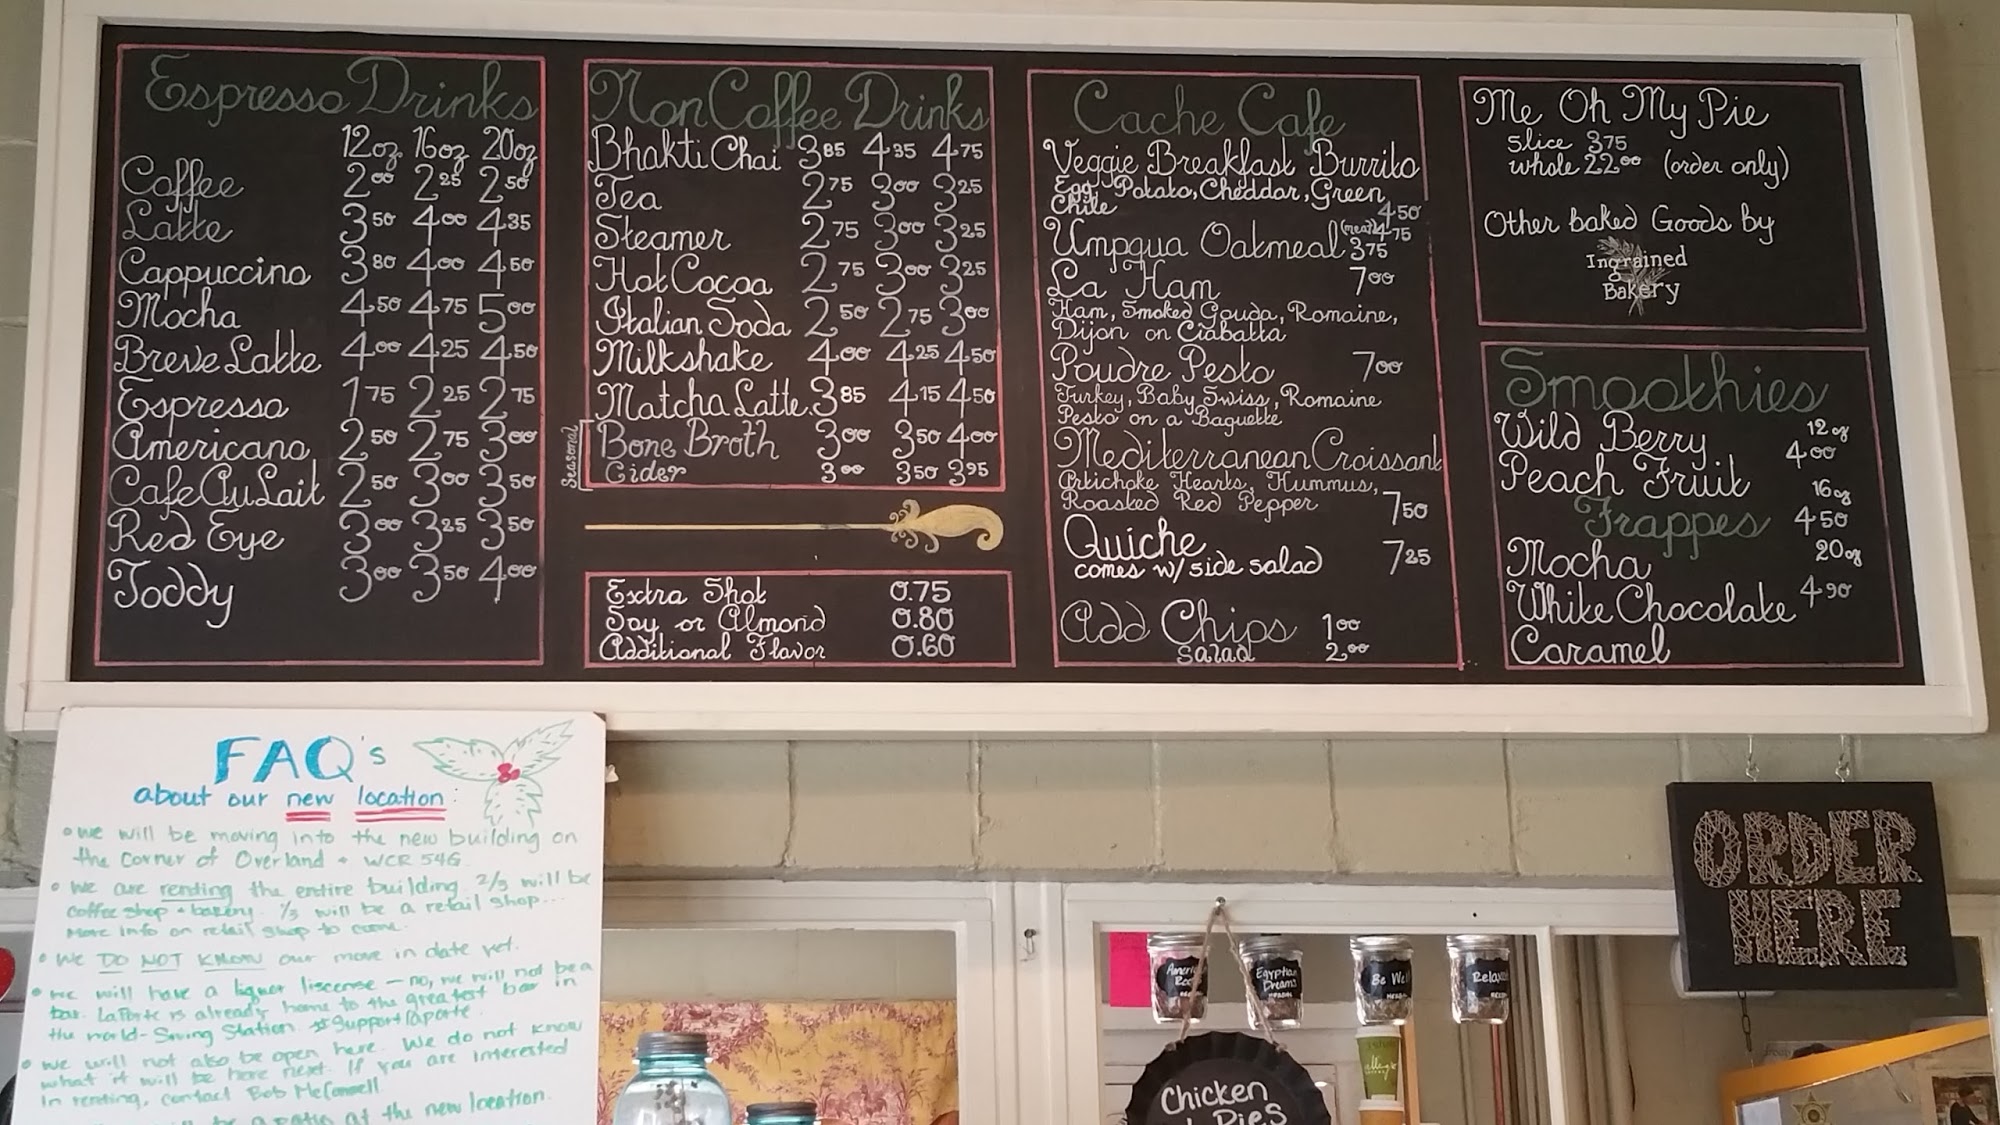 Espresso Drinks
12oz 16oz 20oz
Coffee 2.00 2.25 2.50
Latte 3.50 4.00 4.35
Cappuccino 3.80 4.00 4.50
Mocha 4.50 4.75 5.00
Breve Latte 4.00 4.25 4.50
Espresso 1.75 2.25 2.75
Americano 2.50 2.75 3.00
Cafe Au Lait 2.50 3.00 3.50
Red Eye 3.00 3.25 3.50
Toddy 3.00 3.50 4.00
Non Coffee Drinks
Bhakti Chai 3.85 4.35 4.75
Tea 2.75 3.00 3.25
Steamer 2.75 3.00 3.25
Hot Cocoa 2.75 3.00 3.25
Italian Soda 2.50 2.75 3.00
Milkshake 4.00 4.25 4.50
Matcha Latte 3.85 4.15 4.50
Seasonal
Bone Broth 3.00 3.50 4.00
Cider 3.00 3.50 3.95
Extra Shot 0.75
Soy or Almond 0.80
Additional Flavor 0.60
Cache Cafe
Veggie Breakfast Burrito
Egg, Potato, Cheddar, Green
Chile 4.50
(meat) 4.75
Umpqua Oatmeal 3.75
La Ham 7.00
Ham, Smoked Gouda, Romaine,
Dijon on Ciabatta
Poudre Pesto 7.00
Turkey, Baby Swiss, Romaine
Pesto on a Baguette
Mediterranean Croissant
Artichoke Hearts, Hummus,
Roasted Red Pepper 7.50
Quiche
comes w/ side salad 7.25
Add Chips 1.00
Salad 2.00
Me Oh My Pie
slice 3.75
whole 22.00 (order only)
Other baked Goods by
Ingrained
Bakery
Smoothies
Wild Berry 12oz
4.00
Peach Fruit 16oz
Frappes 4.50
Mocha 20oz
White Chocolate 4.90
Caramel
FAQ's
about our new location:
• We will be moving into the new building on
the corner of Overland + WCR 54G.
• We are renting the entire building. 2/3 will be
coffee shop + bakery. 1/3 will be a retail shop...
More info on retail shop to come.
• We DO NOT KNOW our move in date yet.
• We will have a liquor liscense - no, we will not be a
bar. LaPorte is already home to the greatest bar in
the world - Swing Station. #Supportlaporte
• We will not also be open here. We do not know
what it will be here next. If you are interested
in renting, contact Bob McConnell
be a patio at the new location.
ORDER
HERE
Egyptian
Dreams
Be Well
Chicken
Pies